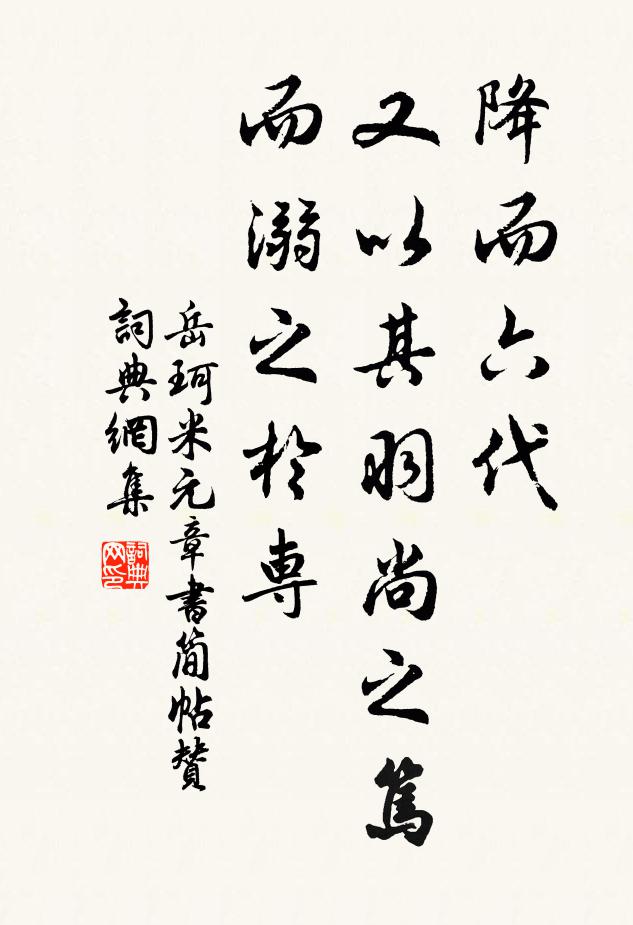 降而六代
又以其羽尚之篤
而溺之於専
岳珂米元章書簡帖賛
詞典網集
詞典网印